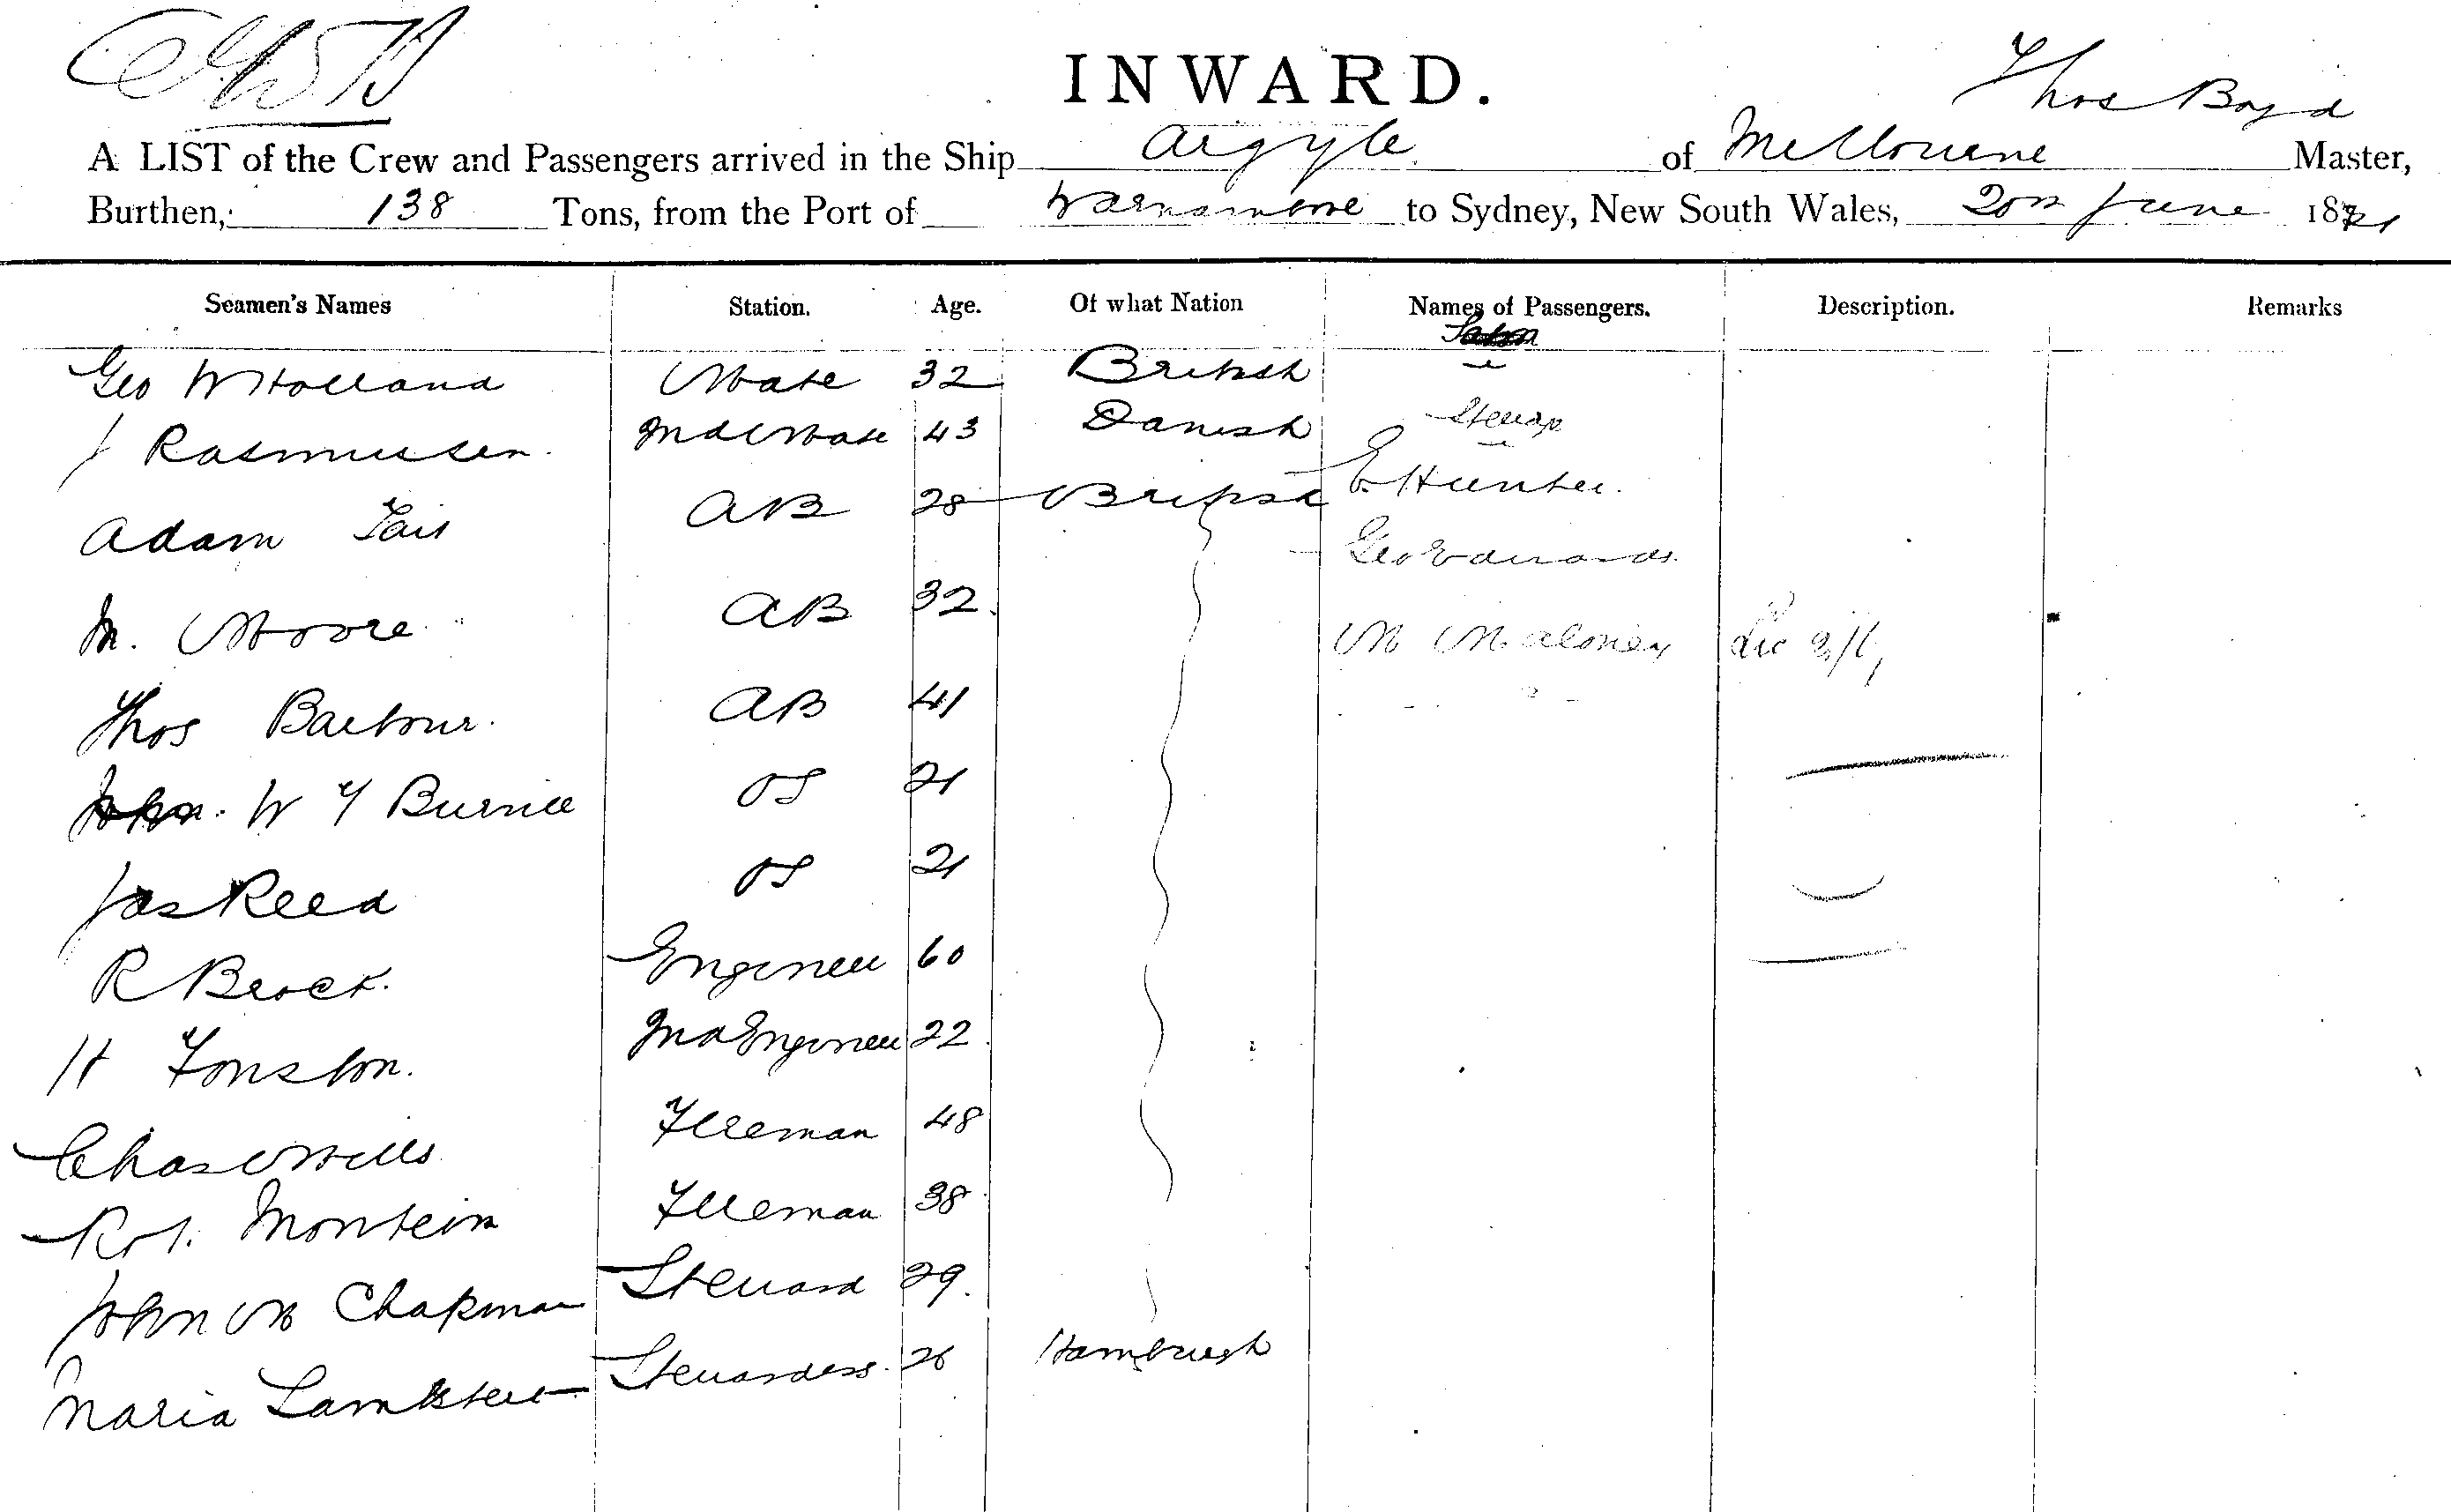 INWARD.
Thos Boyd
A LIST of the Crew and Passengers arrived in the Ship Argyle of Melbourne Master,
Burthen, 138 Tons, from the Port of to Sydney, New South Wales, 20th June 18
Seamen's Names Station. Age. Of what Nation Names of Passengers. Description. Remarks
Geo W Holland Mate 32 British
J Rasmussen 2nd Mate 43 Danish Steerage
Adam Tait AB 28 British E Hunter.
Geo Edwards.
M. Moore AB 32 M Maloney
Thos Barbour AB 41
John W Y Burnie OS 21
Jas Reed OS 21
R Brock. Engineer 60
H Fonston. 2nd Engineer 22
Chas Mills Fireman 48
Rot. Monteim Fireman 38
John M Chapman Steward 29.
Maria Stewardess. 26 Hamburgh